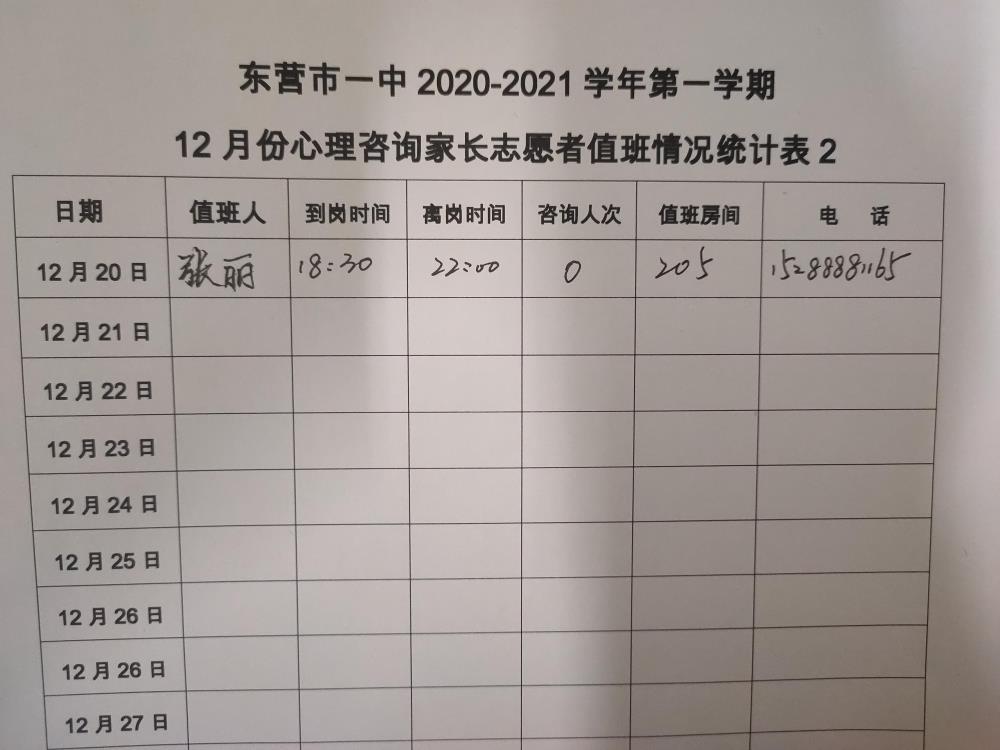 东营市一中 2020-2021 学年第一学期
12 月份心理咨询家长志愿者值班情况统计表 2
日期 值班人 到岗时间 离岗时间 咨询人次 值班房间 电 话
12 月 20 日 张丽 18:30 22:00 0 205 15288881165
12 月 21 日
12 月 22 日
12 月 23 日
12 月 24 日
12 月 25 日
12 月 26 日
12 月 26 日
12 月 27 日